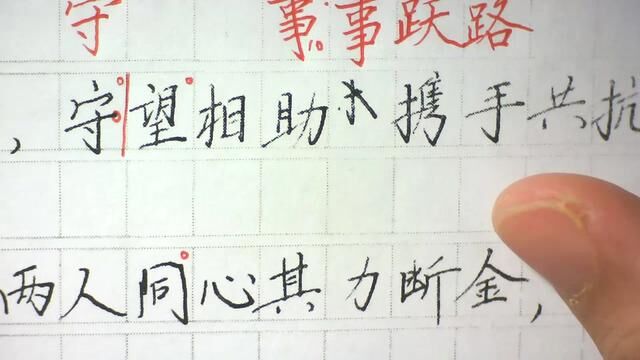 守 事事跃路
，守望相助 携手共抗
两人同心其力断金，